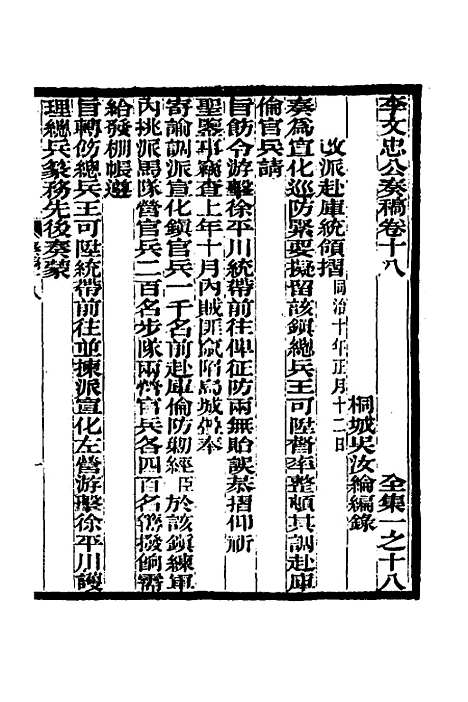 李文忠公奏稿卷十八 全集一之十八
桐城吳汝綸編錄
改派赴庫統領摺 同治十年正月十二日
奏為宣化巡防緊要擬留該鎮總兵王可陞暫率整頓其調赴庫
倫官兵請
旨飭令游擊徐平川統帶前往仰征防兩無貽誤恭摺仰祈
聖鑒事竊查上年十月內賊匪竄陷烏城疊奉
寄諭調派宣化鎮官兵一千名前赴庫倫防勦經臣於該鎮練軍
內挑派馬隊營官兵二百名步隊兩營官兵各四百名籌撥餉需
給發棚帳遴
旨轉飭總兵王可陞統帶前往並揀派宣化左營游擊徐平川護
理總兵篆務先後奏蒙